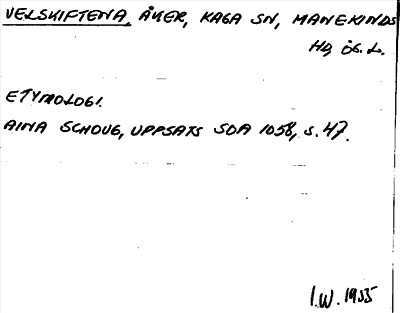 VELSKIFTENA, ÅKER, KAGA SN, HANEKINDS
HD, ÖG. L.
ETYMOLOGI.
AINA SCHOUG, UPPSATS SOA 1058, S. 47.
I.W. 1955